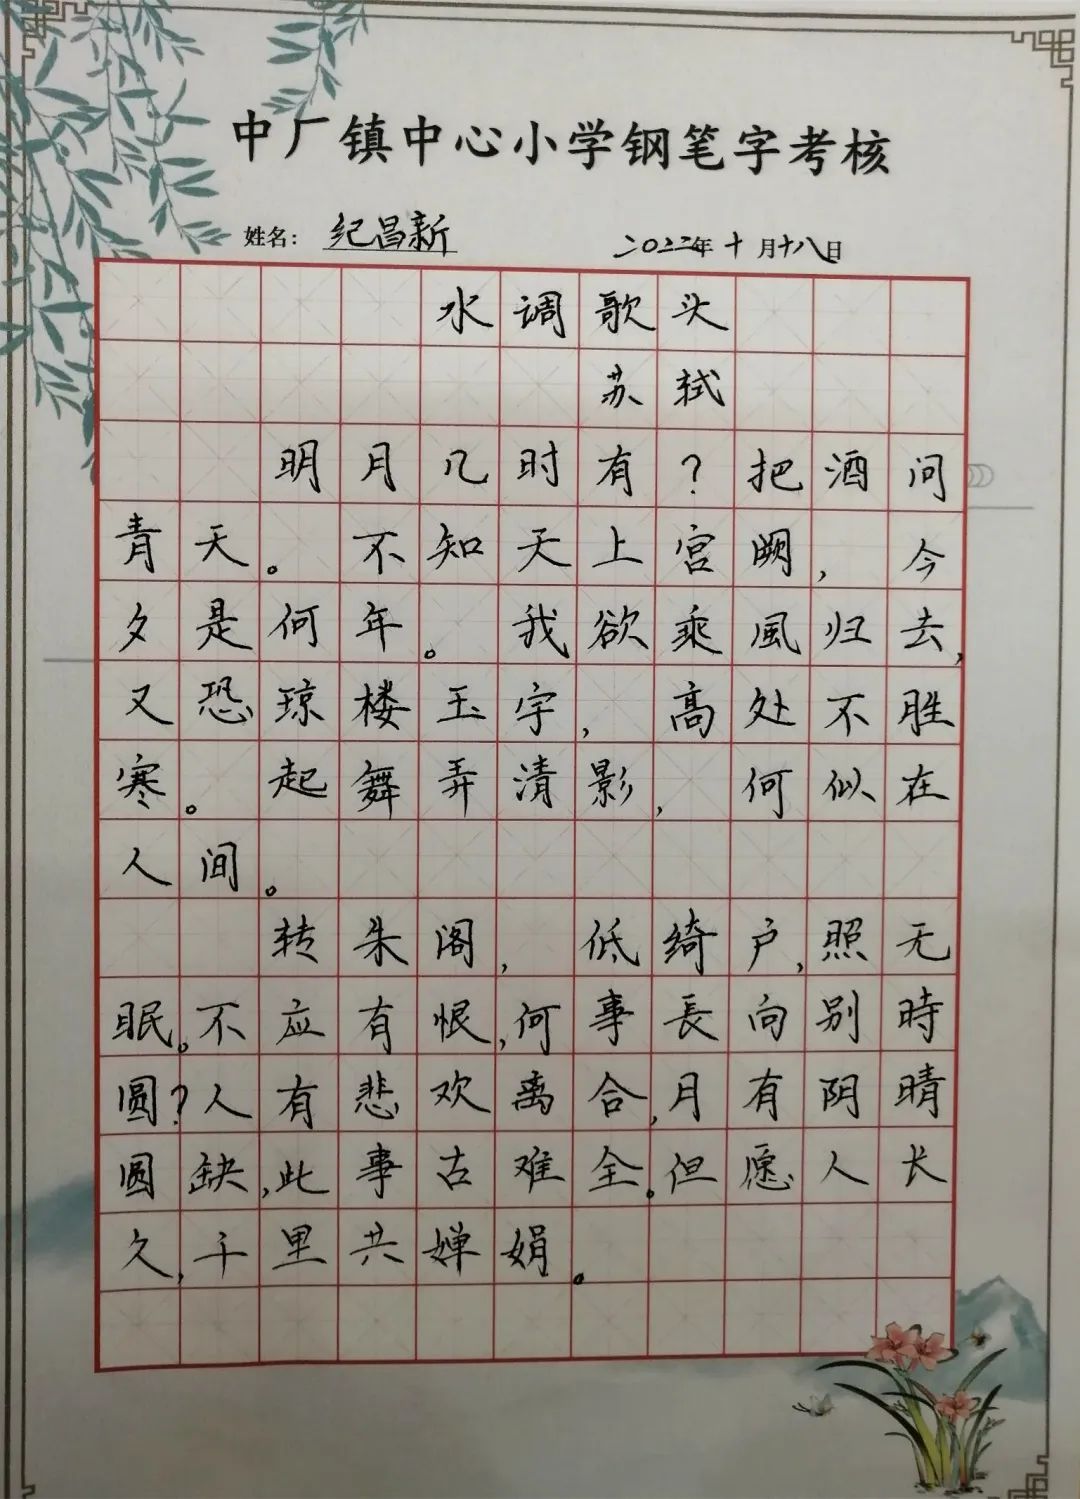 中厂镇中心小学钢笔字考核
姓名：纪昌新 二〇二二年十月十八日
水调歌头
苏轼
明月几时有？把酒问
青天。不知天上宫阙，今
夕是何年。我欲乘風归去，
又恐琼楼玉宇，高处不胜
寒。起舞弄清影，何似在
人间。
转朱阁，低绮户，照无
眠。不应有恨，何事長向别時
圆？人有悲欢离合，月有阴晴
圆缺，此事古难全。但愿人长
久，千里共婵娟。